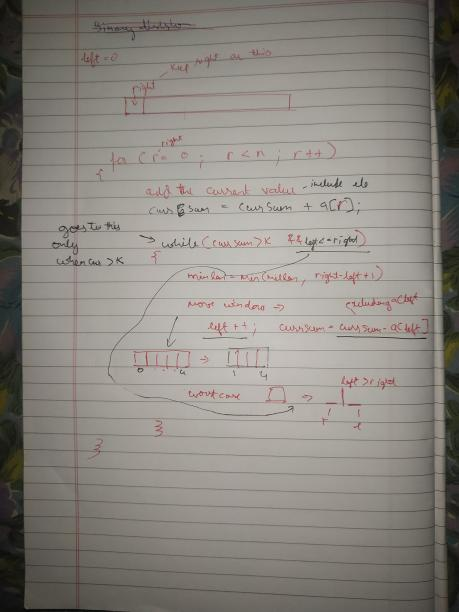 left = 0
keep right on this
right
right
for ( r = 0 ; r < n ; r++ )
{
add the current value - include ele
curr sum = curr sum + a[r];
goes to this
only
when cur > K
while (cur sum > K && left <= right)
{
minlen = min(minlen, right-left+1)
move window → excluding a[left
left ++ ; currsum = currsum - a[left]
0 4 → 1 4
worst case → left > right
r l
}
}